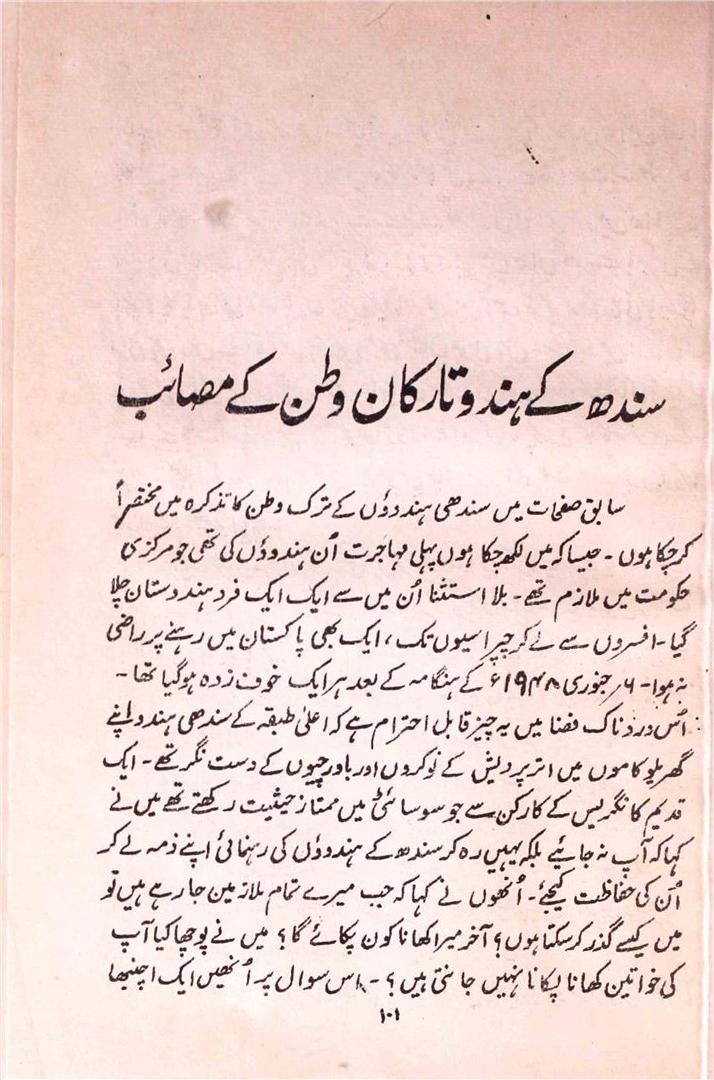 سندھ کے ہندو تارکان وطن کے مصائب
سابق صفحات میں سندھی ہندوؤں کے ترک وطن کا تذکرہ میں مختصراً
کرچکا ہوں ۔ جیسا کہ میں لکھ چکا ہوں پہلی مہاجرت اُن ہندوؤں کی تھی جو مرکزی
حکومت میں ملازم تھے ۔ بلا استثنا اُن میں سے ایک ایک فرد ہندوستان چلا
گیا ۔ افسروں سے لے کر چپراسیوں تک ، ایک بھی پاکستان میں رہنے پر راضی
نہ ہوا ۔ ۶؍ جنوری ۱۹۴۸ء کے ہنگامہ کے بعد ہر ایک خوف زدہ ہوگیا تھا ۔
اُس دردناک فضا میں یہ چیز قابل احترام ہے کہ اعلیٰ طبقہ کے سندھی ہندو اپنے
گھریلو کاموں میں اتر پردیش کے نوکروں اور باورچیوں کے دست نگر تھے ۔ ایک
قدیم کانگریس کے کارکن سے جو سوسائٹی میں ممتاز حیثیت رکھتے تھے میں نے
کہا کہ آپ نہ جائیے بلکہ یہیں رہ کر سندھ کے ہندوؤں کی رہنمائی اپنے ذمہ لے کر
اُن کی حفاظت کیجئے ۔ اُنھوں نے کہا کہ جب میرے تمام ملازمین جارہے ہیں تو
میں کیسے گذر کرسکتا ہوں ؟ آخر میرا کھانا کون پکائے گا ؟ میں نے پوچھا کیا آپ
کی خواتین کھانا پکانا نہیں جانتی ہیں ؟ ۔ اس سوال پر اُنھیں ایک اچنبھا
۱۰۱